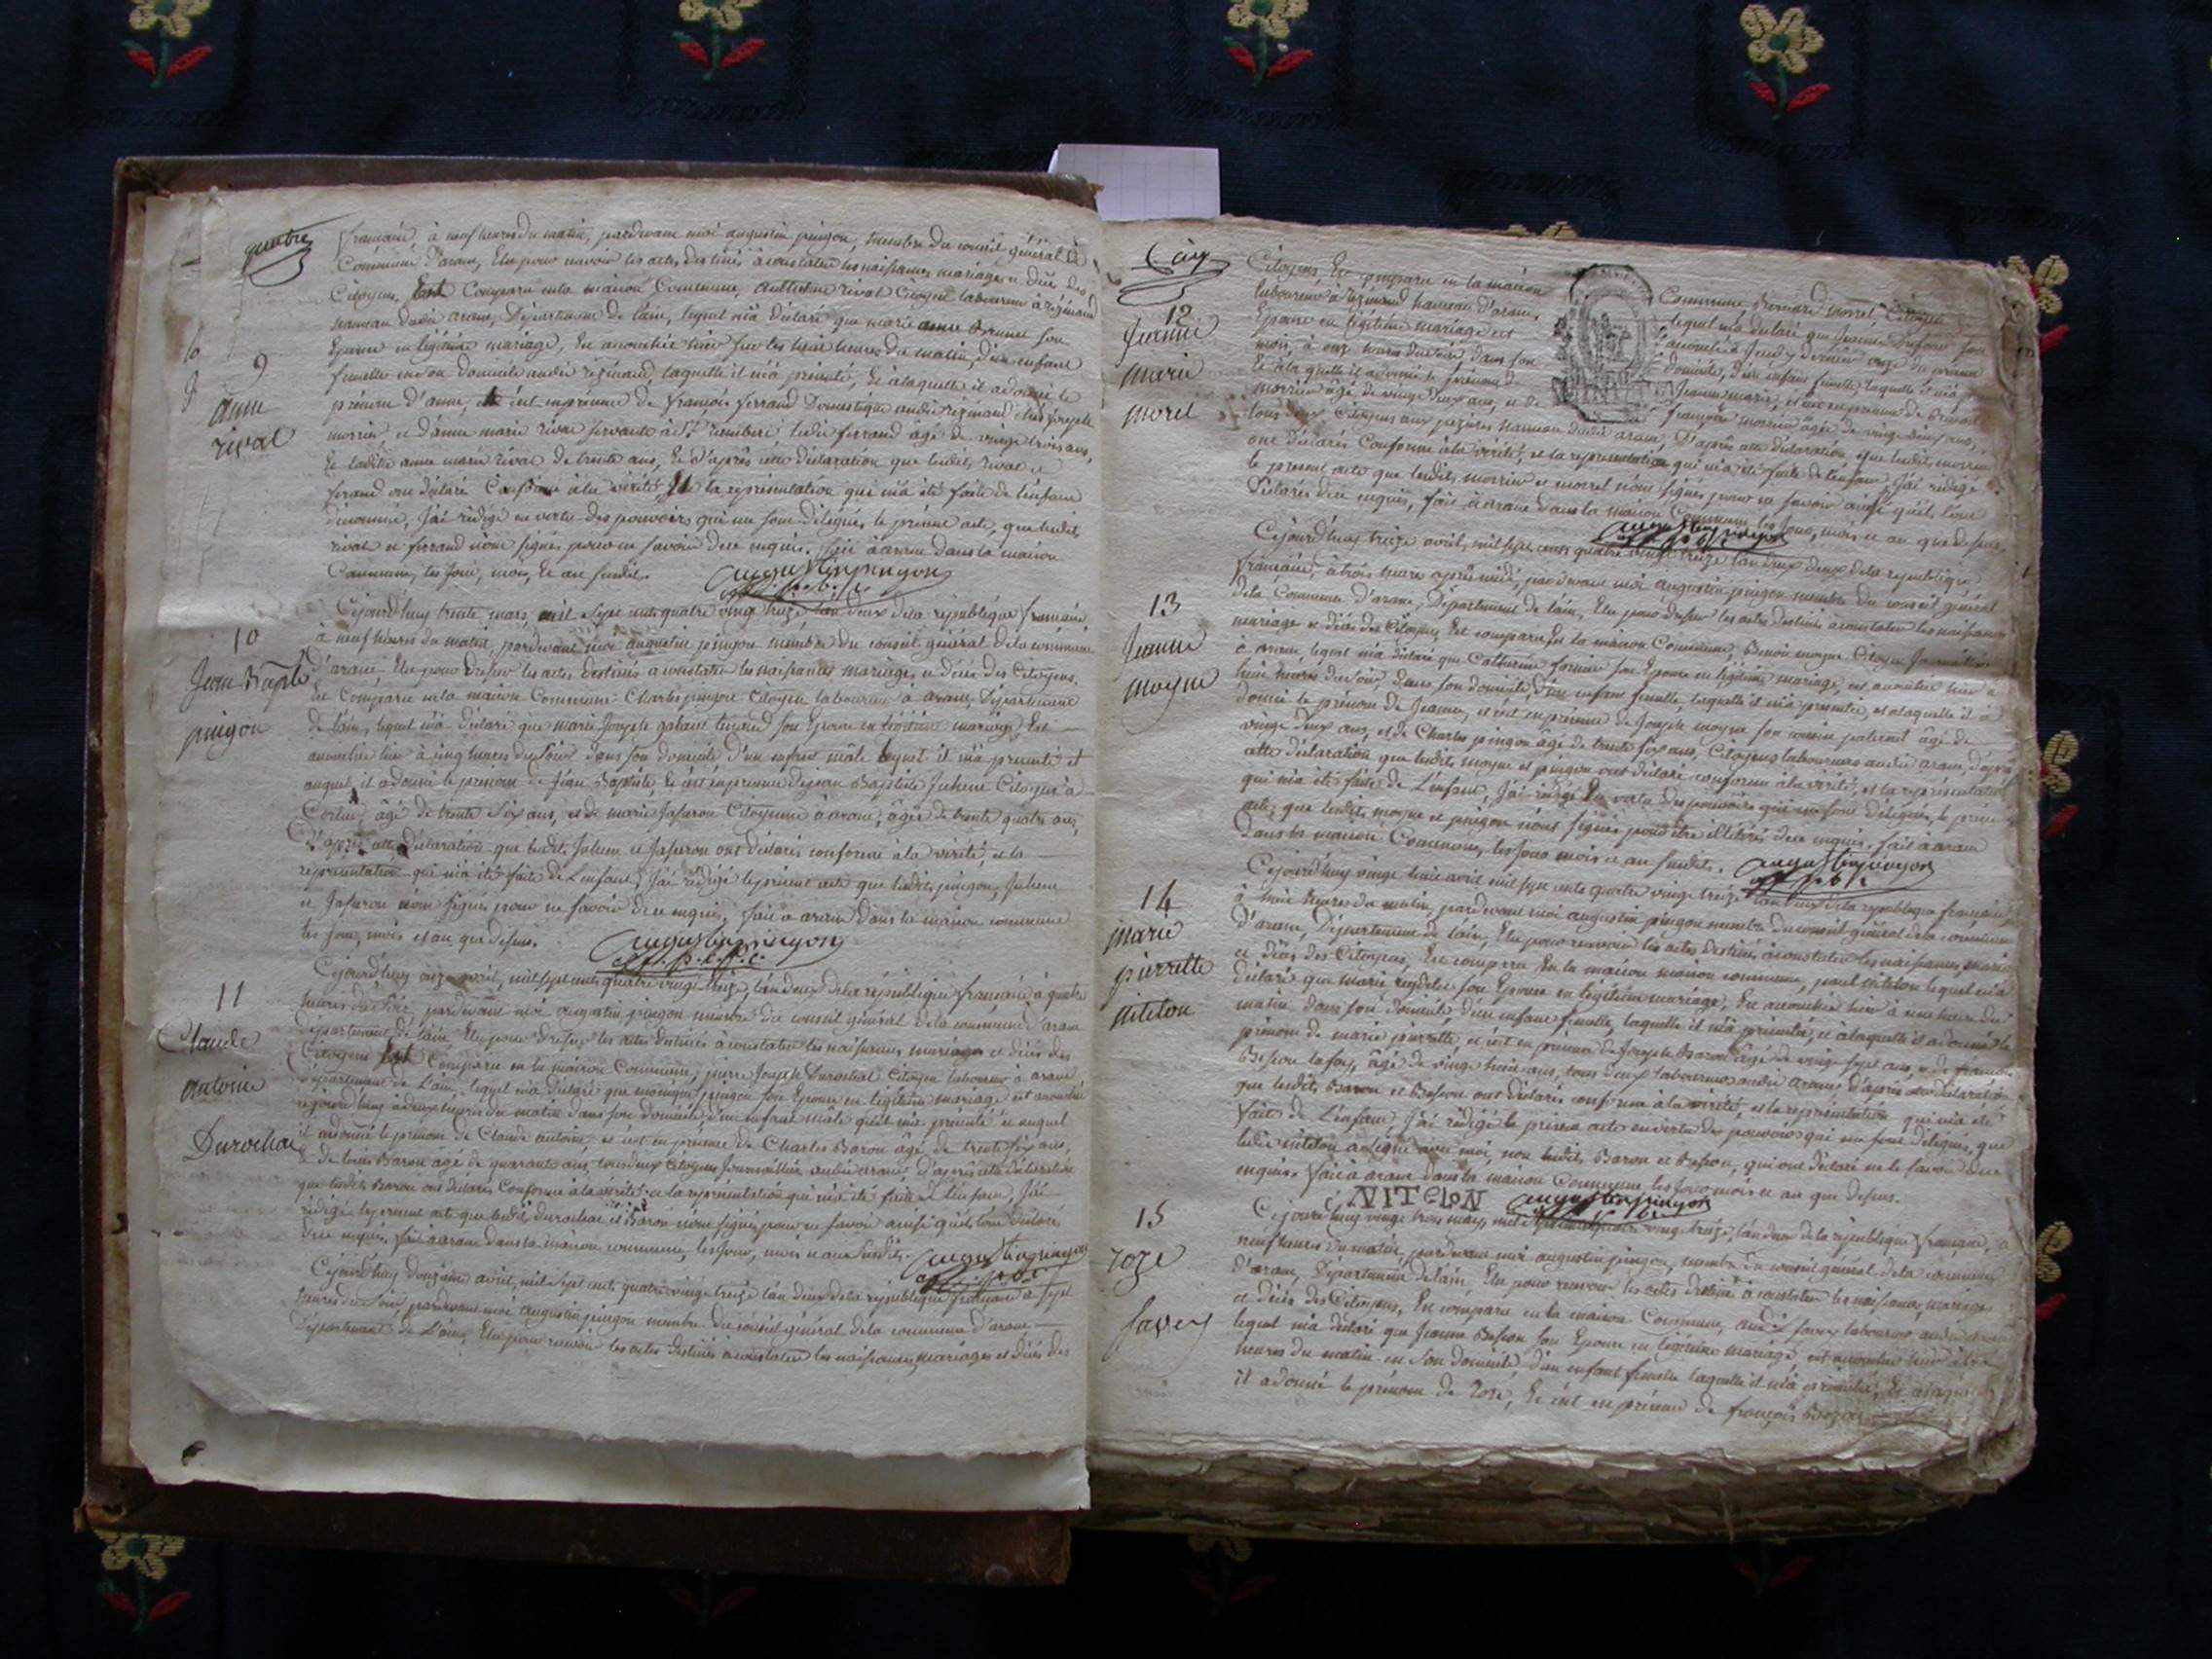 quatre
française, à neuf heures du matin, pardevant moi augustin pingon, membre du conseil général de la
Commune d'aranc, Elu pour recevoir les actes destinés à constater les naissances mariages et décès des
Citoyens, Est Comparu en la maison Commune, rival Citoyen laboureur à résinand
hameau dudit aranc, Département de l'ain, lequel m'a déclaré que marie anne Brunet son
Epouse en légitime mariage, Est accouchée hier sur les heures du matin, d'un enfant
9
femelle en son domicile audit résinand, laquelle il m'a présenté, Et à laquelle il a donné le
anne
prénom d'anne, et c'est en présence de françois ferrand Domestique audit résinand chez joseph
rival
morrin, et d'anne marie rival servante à St rambert, ledit ferrand âgé de vingt trois ans,
Et ladite anne marie rival de trente ans, Et d'après cette déclaration que lesdits rival et
ferrand ont déclaré Conforme à la vérité, Et la représentation qui m'a été faite de l'enfant
dénommé, j'ai rédigé en vertu des pouvoirs qui me sont délégués, le présent acte, que lesdits
rival et ferrand n'ont signés pour ne savoir de ce enquis. fait à aranc dans la maison
Commune, les jour, mois, Et an susdits.
augustin pingon
10
Cejourd'huy trente mars, mil sept cents quatre vingt treize, l'an deux de la république française
à neuf heures du matin, pardevant moi augustin pingon membre du conseil général de la commune
Jean Bapte
d'aranc, Elu pour dresser les actes destinés à constater les naissances mariages et décès des Citoyens.
Est Comparu en la maison Commune Charles pingon Citoyen laboureur à aranc, Département
pingon
de l'ain, lequel m'a déclaré que marie Joseph son Epouse en légitime mariage Est
accouchée hier à cinq heures du soir dans son domicile d'un enfant mâle lequel il m'a présenté et
auquel il a donné le prénom de jean Baptiste, Et c'est en présence de jean Baptiste Juhem Citoyen à
Corlier, âgé de trente six ans, et de marie Citoyenne à aranc, âgée de trente quatre ans,
D'après cette déclaration que lesdits ont déclarés conforme à la vérité, et la
représentation qui m'a été faite de l'enfant, j'ai rédigé le présent acte que lesdits pingon,
et n'ont signés pour ne savoir de ce enquis, fait à aranc dans la maison commune
les jour, mois et an que dessus.
augustin pingon
11
Cejourd'huy onze avril, mil sept cents quatre vingt treize, l'an deux de la république française à quatre
Claude
heures du soir, pardevant moi augustin pingon membre du conseil général de la commune d'aranc
antoine
département de l'ain, Elu pour dresser les actes destinés à constater les naissances mariages et décès des
Durochat
Citoyens Est Comparu en la maison Commune, pierre Joseph Durochat Citoyen laboureur à aranc
département de l'ain, lequel m'a déclaré que pingon son Epouse en légitime mariage est accouchée
cejourd'huy à deux heures du matin dans son domicile, d'un enfant mâle qu'il m'a présenté et auquel
il a donné le prénom de Claude antoine, et c'est en présence de Charles Baron âgé de trente six ans,
et de louis Baron âgé de quarante ans, tous deux Citoyens Journaillier audit aranc, d'après cette déclaration
que lesdits Baron ont déclarés Conforme à la vérité et la représentation qui m'a été faite de l'enfant, j'ai
rédigé le présent acte que lesdits durochat et Baron n'ont signés pour ne savoir ainsi qu'ils l'ont déclaré
de ce enquis, fait à aranc dans la maison commune, les jour, mois et an susdits.
augustin pingon
Cejourd'huy douzième avril, mil sept cents quatre vingt treize l'an deux de la république française à sept
heures du soir, pardevant moi augustin pingon membre du conseil général de la commune d'aranc
département de l'ain, Elu pour recevoir les actes destinés à constater les naissances, mariages et décès des
Cinq
Citoyens, Est comparu en la maison Commune, Bernard morrel Citoyen
12
laboureur à résinand hameau d'aranc, lequel m'a déclaré que Jeanne son
Jeanne
Epouse en légitime mariage est accouchée Jeudy dernier onze du présent
marie
mois, à onze heures du soir, dans son domicile, d'un enfant femelle, laquelle il m'a
morel
Et à la quelle il a donné le prénom de Jeanne marie, et c'est en présence de
morrin âgé de vingt deux ans, et de françoise morrin âgée de vingt cinq ans,
tous deux Citoyens aux hameau dudit aranc, D'après cette déclaration que lesdits morrin
ont déclarés Conforme à la vérité, et la représentation qui m'a été faite de l'enfant, j'ai rédigé
le présent acte que lesdits morrin et morrel n'ont signés pour ne savoir ainsi qu'ils l'ont
déclarés de ce enquis, fait à aranc dans la maison Commune les jour, mois et an que dessus.
augustin pingon
Cejourd'huy treize avril, mil sept cents quatre vingt treize l'an deux de la république
française, à trois heures après midi, pardevant moi augustin pingon membre du conseil général
13
de la Commune d'aranc, Département de l'ain, Elu pour dresser les actes destinés à constater les naissances
Jeanne
mariages et décès des Citoyens, Est comparu En la maison Commune, Benoit moyne Citoyen Journaillier
moyne
à aranc, lequel m'a déclaré que Catherine son Epouse en légitime mariage, est accouchée hier à
huit heures du soir, dans son domicile, d'un enfant femelle, laquelle il m'a présentée, et à laquelle il a
donné le prénom de Jeanne, et c'est en présence de Joseph moyne son cousin paternel âgé de
vingt deux ans, et de Charles pingon âgé de trente six ans, Citoyens laboureurs audit aranc, d'après
cette déclaration que lesdits moyne et pingon ont déclaré conforme à la vérité, et la représentation
qui m'a été faite de l'enfant, j'ai rédigé En vertu des pouvoirs qui me sont délégués, le présent
acte, que lesdits moyne et pingon n'ont signés pour être illitérés de ce enquis. fait à aranc
dans la maison Commune, les jour mois et an susdits.
augustin pingon
14
Cejourd'huy vingt huit avril mil sept cents quatre vingt treize l'an deux de la république française,
marie
à huit heures du matin, pardevant moi augustin pingon membre du conseil général de la commune
pierrette
d'aranc, Département de l'ain, Elu pour recevoir les actes destinés à constater les naissances, mariages
nitelon
et décès des Citoyens, Est comparu En la maison maison commune, paul nitelon lequel m'a
déclaré que marie son Epouse en légitime mariage, Est accouchée hier à une heure du
matin dans son domicile d'un enfant femelle, laquelle il m'a présentée, et à laquelle il a donné le
prénom de marie pierrette, et c'est en présence de Joseph Baron âgé de vingt sept ans, et de
Besson âgé de vingt huit ans, tous deux laboureurs audit aranc, d'après cette déclaration
que lesdits Baron et Besson ont déclarés conforme à la vérité, et la représentation qui m'a été
faite de l'enfant, j'ai rédigé le présent acte en vertu des pouvoirs qui me sont délégués, que
ledit nitelon a signé avec moi, non lesdits Baron et Besson, qui ont déclaré ne le savoir de ce
enquis. fait à aranc dans la maison Commune les jour mois et an que dessus.
NITELON augustin pingon
15
Cejourd'huy vingt trois may, mil sept cents quatre vingt treize, l'an deux de la république française, à
roze
neuf heures du matin, pardevant moi augustin pingon, membre du conseil général de la commune
savey
d'aranc, Département de l'ain, Elu pour recevoir les actes destinés à constater les naissances, mariages
et décès des Citoyens, Est comparu en la maison Commune, savey laboureur audit
lequel m'a déclaré que Jeanne Besson son Epouse en légitime mariage, est accouchée hier à
heures du matin en son domicile, d'un enfant femelle laquelle il m'a présentée, Et à laquelle
il a donné le prénom de Rose, Et c'est en présence de françois